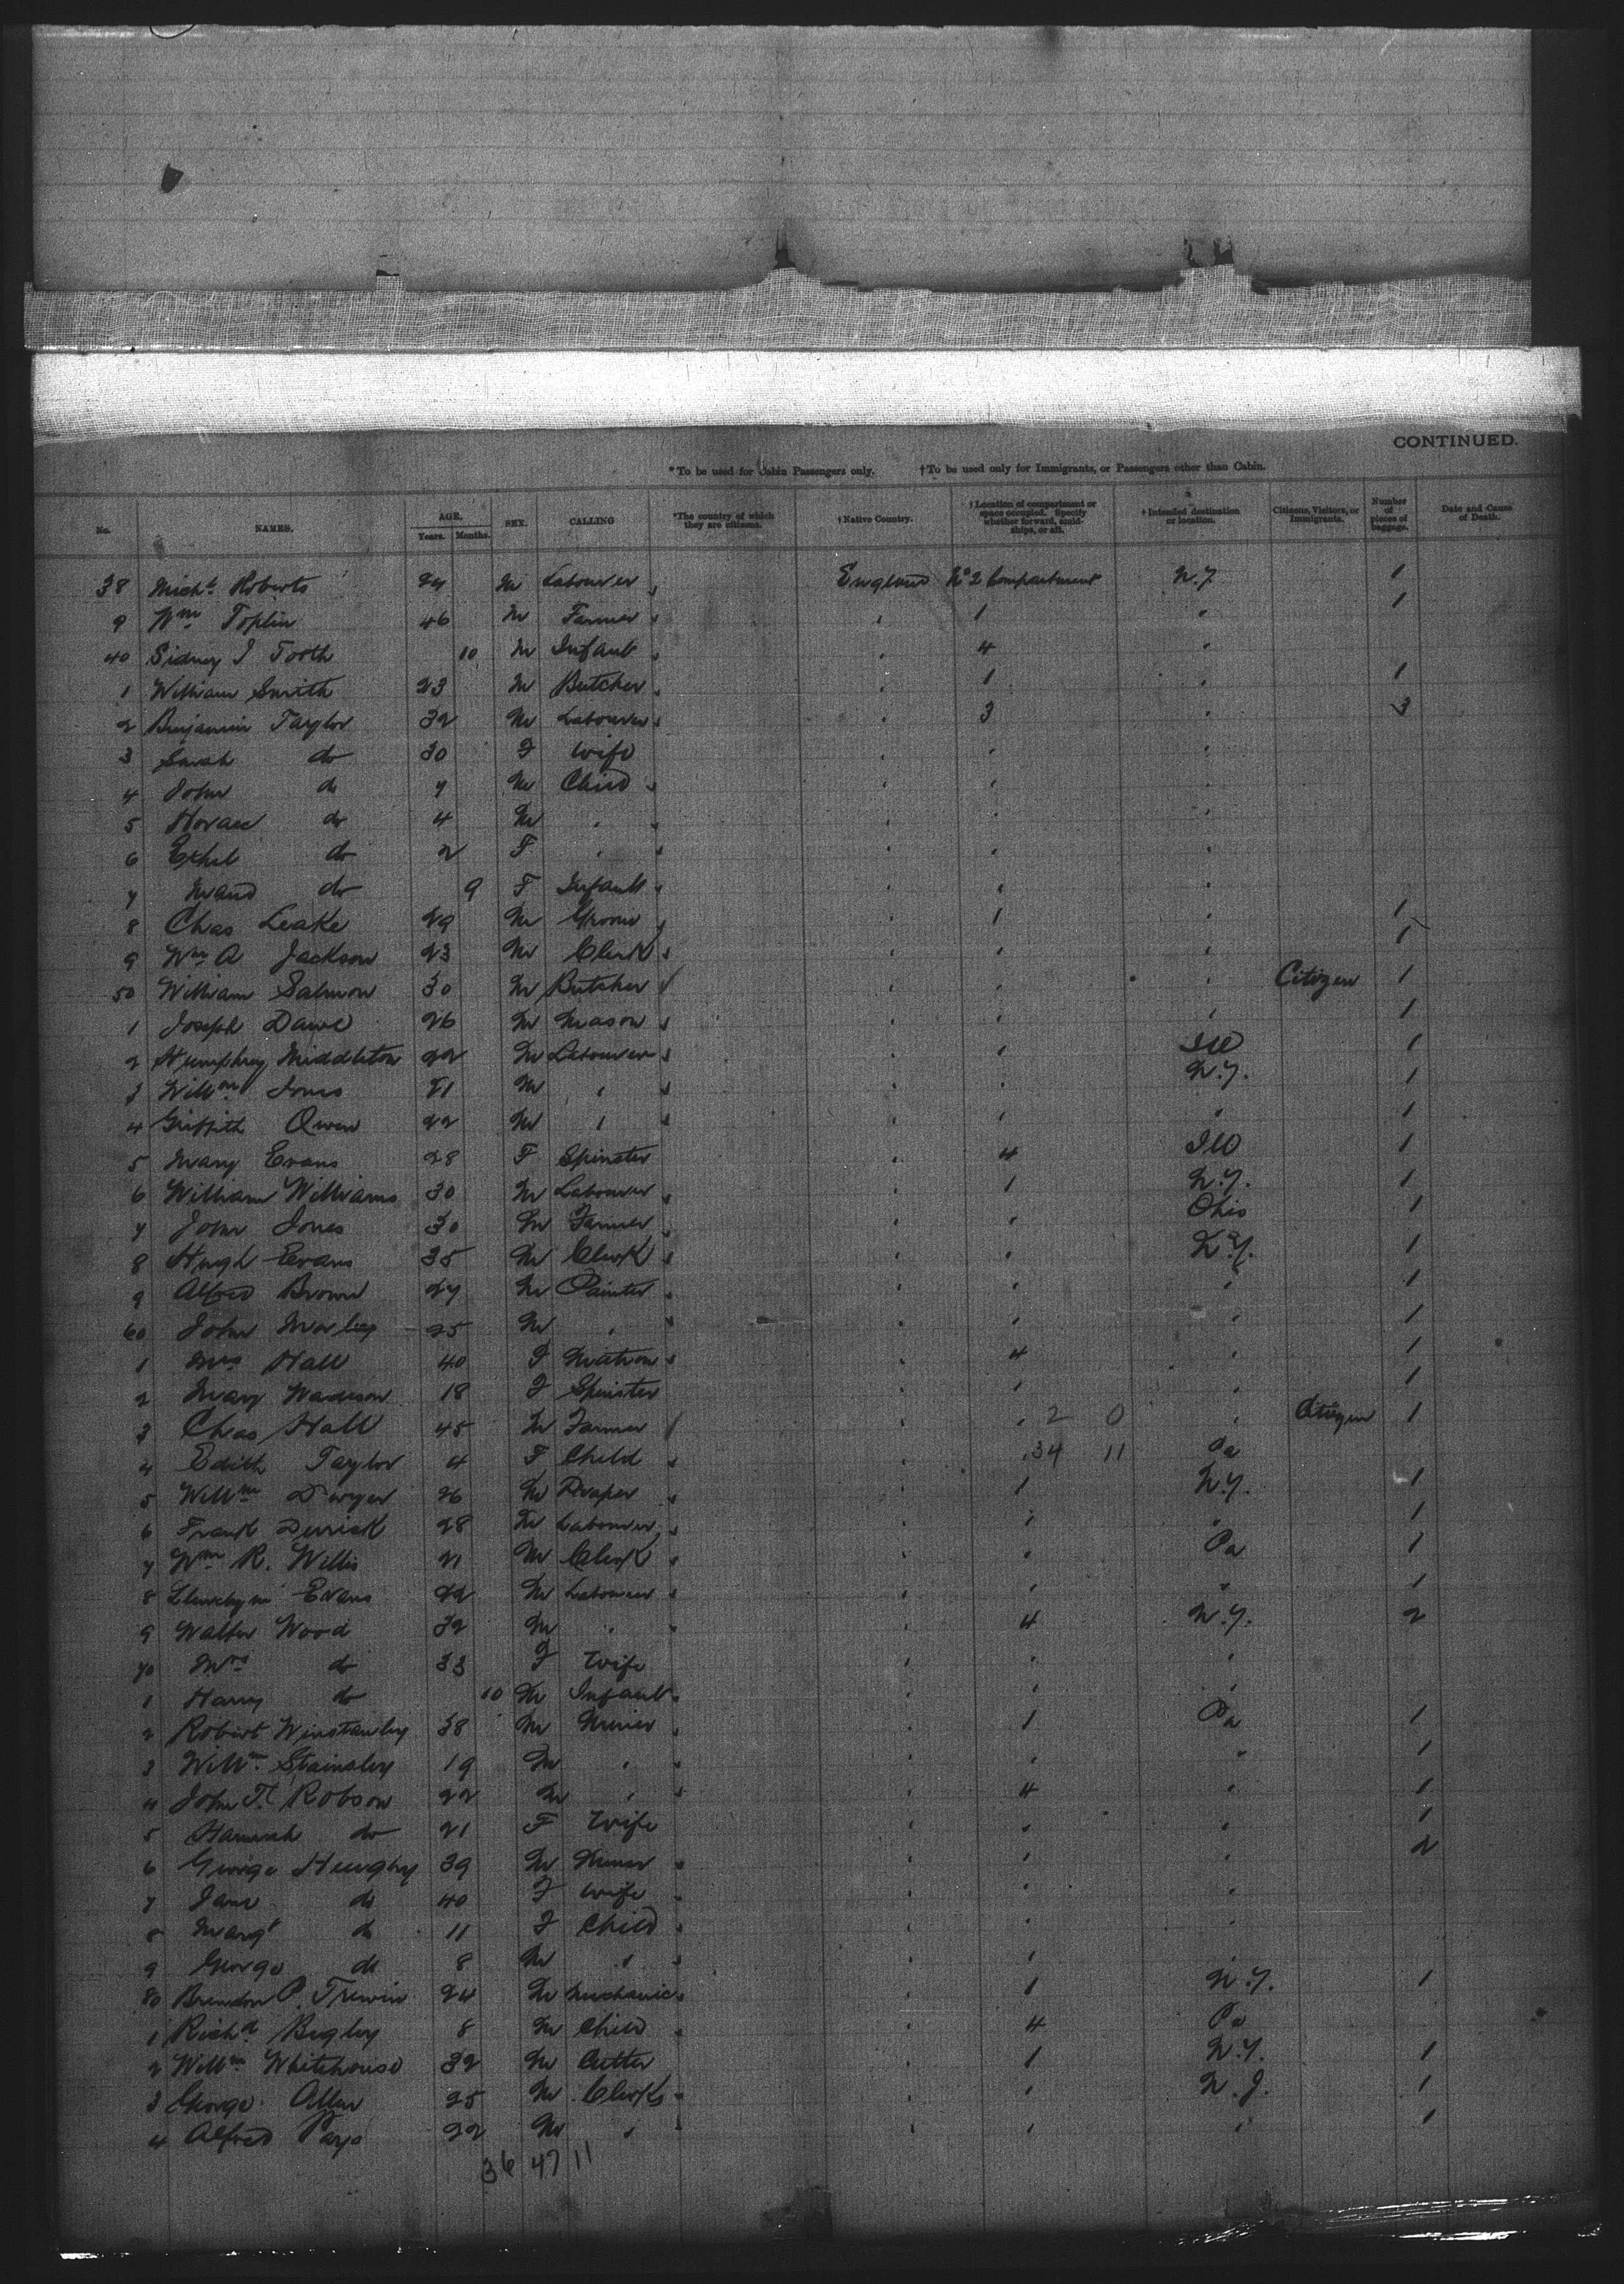 CONTINUED.
*To be used for Cabin Passengers only. †To be used only for Immigrants, or Passengers other than Cabin.
No. NAMES. AGE. Years. Months. SEX. CALLING *The country of which they are citizens. †Native Country. †Location of compartment or space occupied. Specify whether forward, amidships, or aft. †Intended destination or location. Citizens, Visitors, or Immigrants. Number of pieces of baggage. Date and Cause of Death.
38 Michl Roberts 24 M Labourer England No 2 Compartment N.Y. 1
9 Wm Toplin 46 M Farmer " 1 " 1
40 Sidney J Tooth 10 M Infant " 4 "
1 William Smith 23 M Butcher " 1 " 1
2 Benjamin Taylor 32 M Labourer " 3 " 3
3 Sarah do 30 F Wife " " "
4 John do 7 M Child " " "
5 Horace do 4 M " " " "
6 Ethel do 2 F " " " "
7 Maud do 9 F Infant " " "
8 Chas Leake 29 M Groom " 1 " 1
9 Wm A Jackson 23 M Clerk " " " 1
50 William Salmon 30 M Butcher " " " Citizen 1
1 Joseph Dawe 26 M Mason " " " 1
2 Humphrey Middleton 22 M Labourer " " Ill 1
3 Willm Jones 21 M " " " N.Y. 1
4 Griffith Owen 22 M " " " " 1
5 Mary Evans 28 F Spinster " 4 Ill 1
6 William Williams 30 M Labourer " 1 N.Y. 1
7 John Jones 30 M Farmer " " Ohio 1
8 Hugh Evans 35 M Clerk " " N.Y. 1
9 Alfred Brown 27 M Painter " " " 1
60 John Morley 25 M " " " " 1
1 Mrs Hall 40 F Matron " 4 " 1
2 Mary Wadeson 18 F Spinster " " " 1
3 Chas Hall 45 M Farmer " " 2 0 " Citizen 1
4 Edith Taylor 4 F Child " " 34 11 Pa
5 Willm Dwyer 26 M Draper " 1 N.Y. 1
6 Frank Derrick 28 M Labourer " " " 1
7 Wm R. Willis 21 M Clerk " " Pa 1
8 Evans 22 M Labourer " " " 1
9 Walter Wood 32 M " " 4 N.Y. 2
70 Mrs do 33 F Wife " " "
1 Harry do 10 M Infant " " "
2 Robert Winstanley 38 M Miner " 1 Pa 1
3 Willm Stainsley 19 M " " " " 1
4 John T. Robson 22 M " " 4 " 1
5 Hannah do 21 F Wife " " " 1
6 George Heughy 39 M Miner " " " 2
7 Jane do 40 F Wife " " "
8 Margt do 11 F Child " " "
9 George do 8 M " " " "
80 Brendon P. Trewin 24 M Mechanic " 1 N.Y. 1
1 Richd Bigley 8 M Child " 4 Pa
2 Willm Whitehouse 32 M Cutter " 1 N.Y. 1
3 George Allen 25 M Clerk " " N.J. 1
4 Alfred 22 M " " " " 1
36 47 11